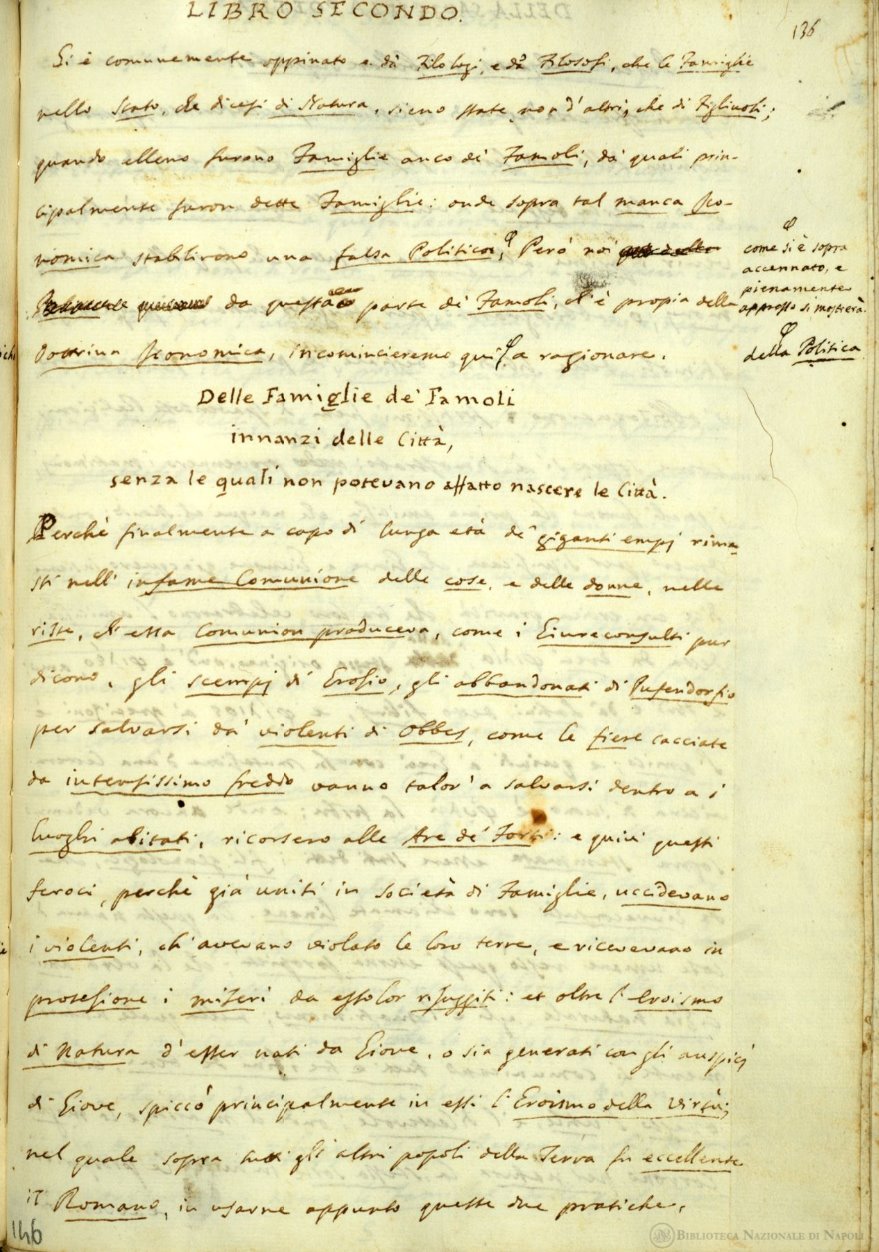 LIBRO SECONDO.
136
Si è comunemente oppinato e da' Filologi, e da' Filosofi, che le Famiglie
nello Stato, che dicesi di Natura, sieno state non d'altri, che di Figliuoli;
quando elleno furono Famiglie anco de' Famoli, da' quali prin-
cipalmente furon dette Famiglie: onde sopra tal manca Ico-
nomica stabilirono una falsa Politica, Però noi
da questa parte de' Famoli, ch'è propia della
Dottrina Iconomica, incomincieremo qui a ragionare.
come si è sopra
accennato, e
pienamente
appresso si mostrerà.
della Politica
Delle Famiglie de' Famoli
innanzi delle Città,
senza le quali non potevano affatto nascere le Città.
Perchè finalmente a capo di lunga età de' giganti empj rima-
sti nell' infame Comunione delle cose, e delle donne, nelle
risse, ch' essa Comunion produceva, come i Giureconsulti pur
dicono, gli scempj di Grozio, gli abbandonati di Pufendorfio
per salvarsi da' violenti di Obbes, come le fiere cacciate
da intensissimo freddo vanno talor' a salvarsi dentro a i
luoghi abitati, ricorsero alle Are de' Forti: e quivi questi
feroci, perchè già uniti in società di Famiglie, uccidevano
i violenti, ch' avevano violato le loro terre, e ricevevano in
protezione i miseri da essolor rifuggiti: et oltre l' Eroismo
di Natura d'esser nati da Giove, o sia generati con gli auspicj
di Giove, spiccò principalmente in essi l' Eroismo della Virtù;
nel quale sopra tutti gli altri popoli della Terra fu eccellente
il Romano, in usarne appunto queste due pratiche,
146
BIBLIOTECA NAZIONALE DI NAPOLI